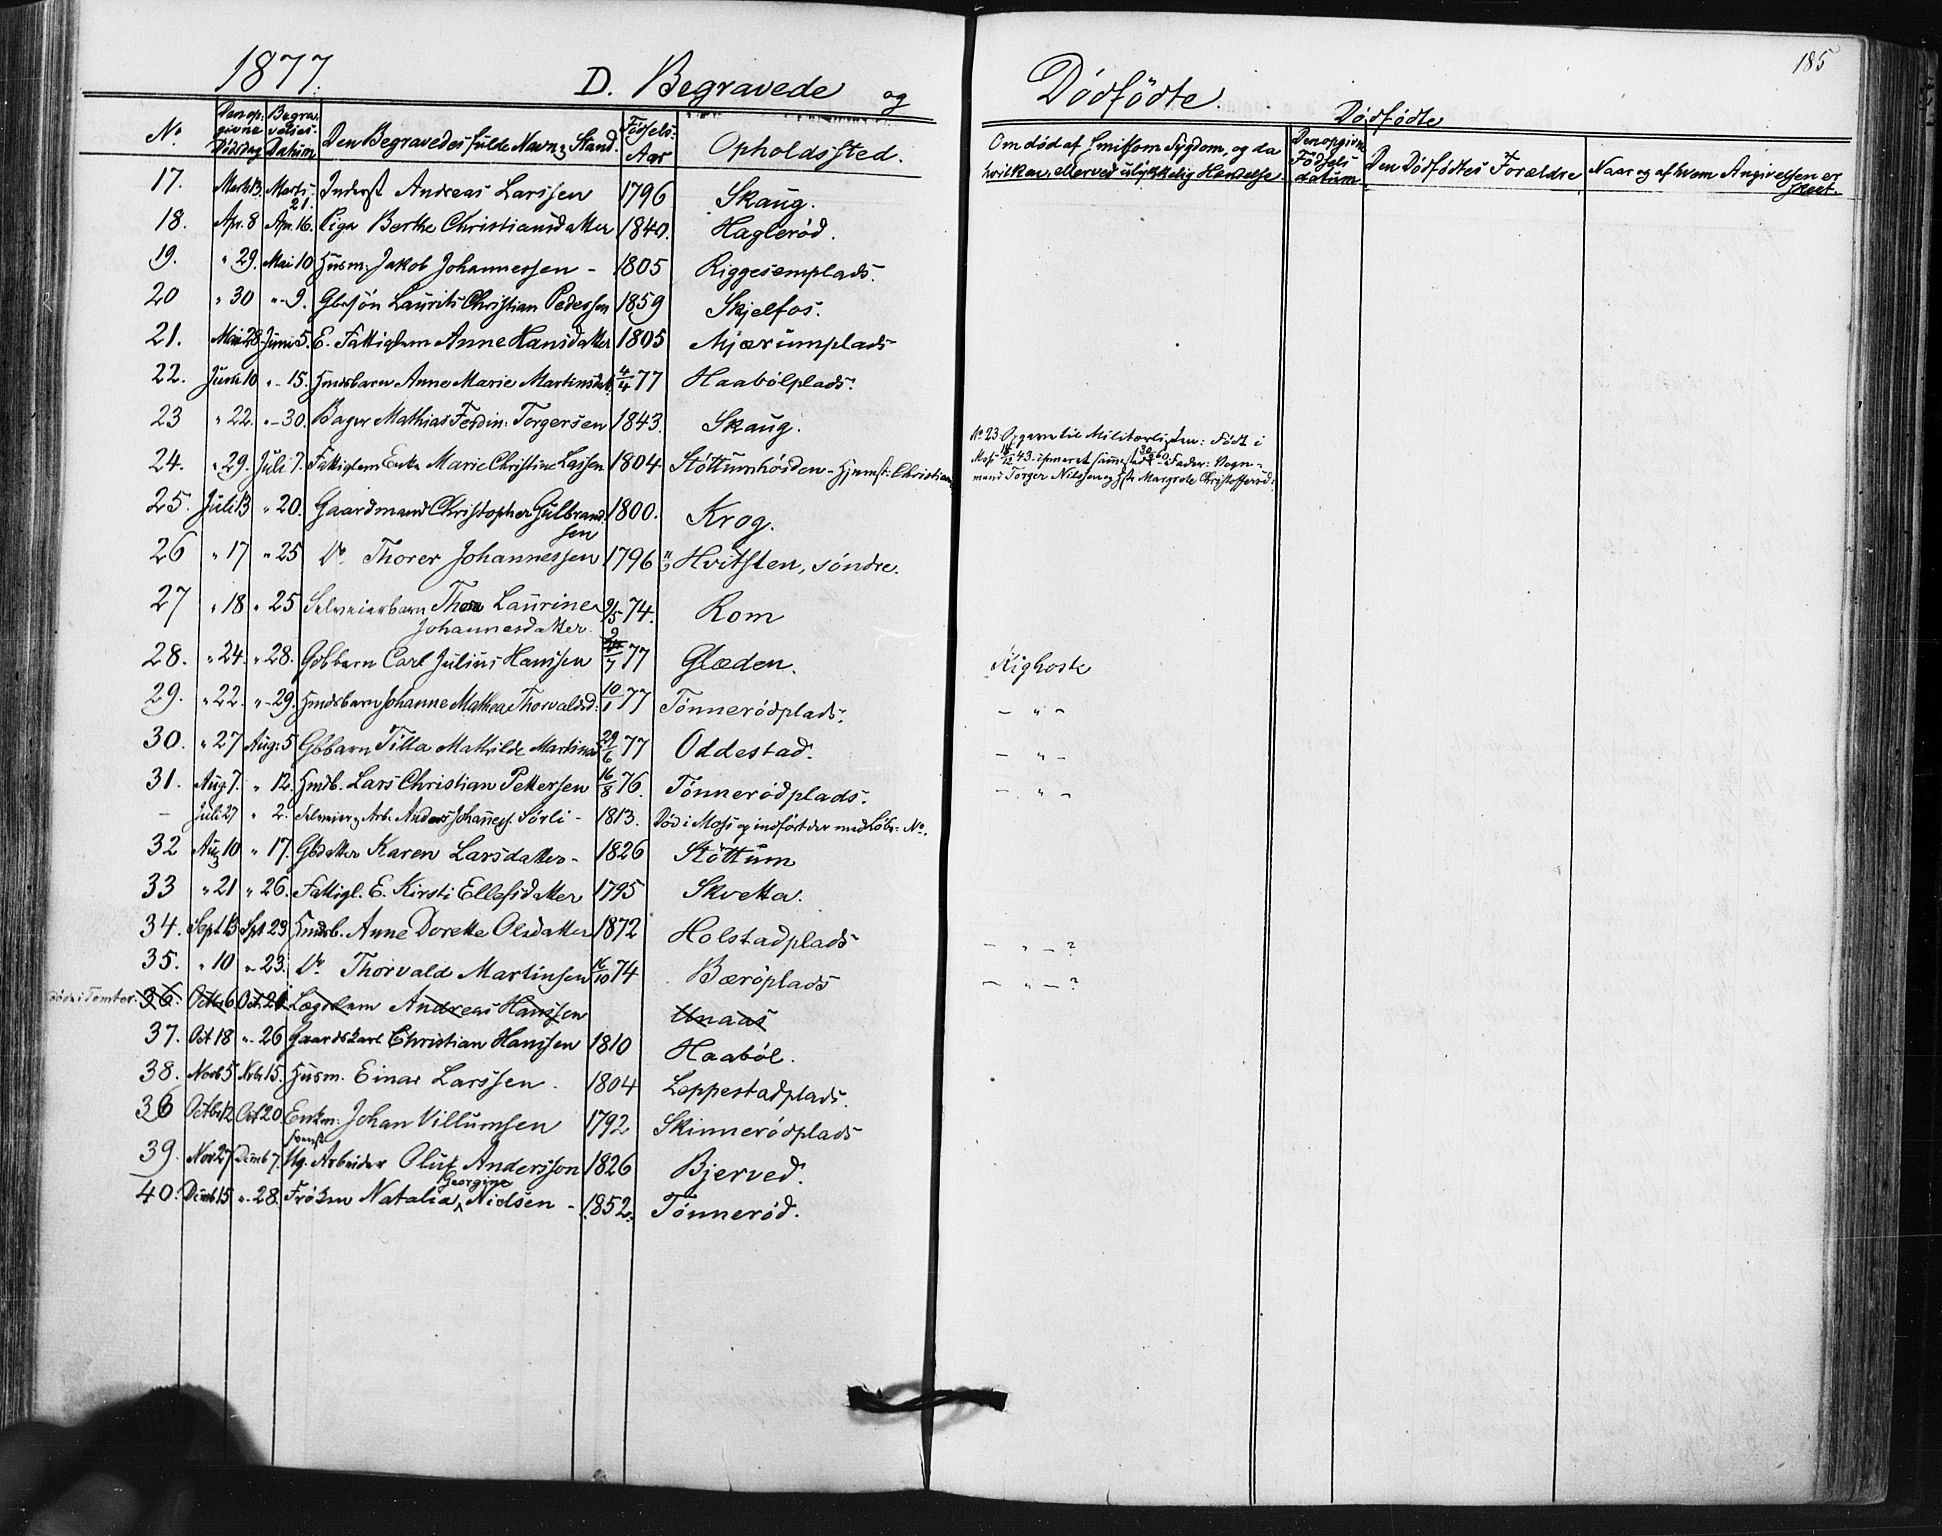 1877.
D. Begravede og
Dödfödte.
185
Dödfödte
No
Den op-
givne
Dödsdag
Begra-
velses-
Datum
Den Begravedes fulde Navn og Stand.
Födsels-
Aar
Opholdssted.
Om död af Smitsom Sygdom, og da
hvilken, eller ved ulykkelig Hændelse
Den opgivne
Födsels
datum
Den Dödfödtes Forældre
Naar og af hvem Angivelsen er
skeet.
17. Marts 13 Marts 21. Inderst Andreas Larssen 1796 Skaug.
18. Apr. 8 Apr. 16. Pige Berthe Christiansdatter 1840. Haglerød.
19. " 29. Mai 10 Husm: Jakob Johannessen - 1805 Riggesemplads.
20 " 30 " - 9. Gbrsön Laurits Christian Pederssen 1859 Skjelfos.
21. Mai 28 Juni 5. E. Fattiglem Anne Hansdatter 1805 Mjærumplads
22. Juni 10 " - 15. Hmdsbarn Anne Marie Martinsdatt. 4/4 77 Haabölplads.
23 " 22. " - 30. Bager Mathias Ferdin: Torgersen 1843. Skaug.
No 23. Opgave til Militærlisten: Født i
Moss 43. confirmeret sammesteds 60. Fader: Vogn-
mand Torger Nilssen og Hst Margrete Christoffersd:
24. " 29. Juli 7. Fattiglem Enke Marie Christine Lassen 1804 Stöttumhösden - Hjemst: Christiania
25. Juli 13 " 20. Gaardmand Christopher Gulbrand-
sen 1800. Krog.
26 " 17 " 25 Do Thorer Johannessen 1796 Hvitsten, söndre.
27 " 18 " 25 Selveierbarn Thea Laurine
Johannesdatter 9/5 74. Rom
28. " 24. " 28. Gbbarn Carl Julius Hanssen 2/7 77 Glæden. Kighoste
29. " 22. " - 29. Hmdsbarn Johanne Mathea Thorvaldsd: 10/1 77 Tönnerödplads. - " -
30. " 27 Aug: 5 Gbbarn Tilla Mathilde Martinsd 29/6 77 Oddestad. - " -
31. Aug 7. " 12. Hmdb. Lars Christian Pettersen 16/8 76. Tönnerödplads. - " -
- Juli 27 " 2. Selveier og Arb. Anders Johannes. Sörli - 1813. Död i Moss og indfört der med Löbe- No.
32 Aug 10 " 17. Gbdatter Karen Larsdatter - 1826 Stöttum
33 " 21 " 26. Fattigl. E. Kirsti Ellefsdatter 1795 Skvetta.
34. Sept 13 Spt 23 Hmdsb. Anne Dorette Olsdatter 1872 Holstadplads - " - ?
35. " 10 " 23. Do Thorvald Martinsen 16/10 74 Bæröplads - " - ?
i Tomter. 36. Octb 6 Oct. 20. Lægdslem Andreas Hanssen Unaas
37. Oct 18 " 26 Gaardskarl Christian Hanssen 1810 Haaböl.
38. Novb 5 Nvbr 15. Husm. Einar Larssen. 1804 Leppestadplads.
36 Octbr 12 Oct 20. Enkm. Johan Villumsen 1792 Skinnerödplads
39. Nov 27 Dcmb 7. svensk
Ug. Arbeider Oluf Andersson 1826 Bjerved.
40. Dcmb 15 " 28. Fröken Natalia Georgine Nielsen - 1852. Tönneröd.